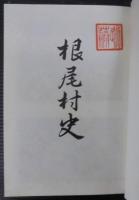 根尾村史